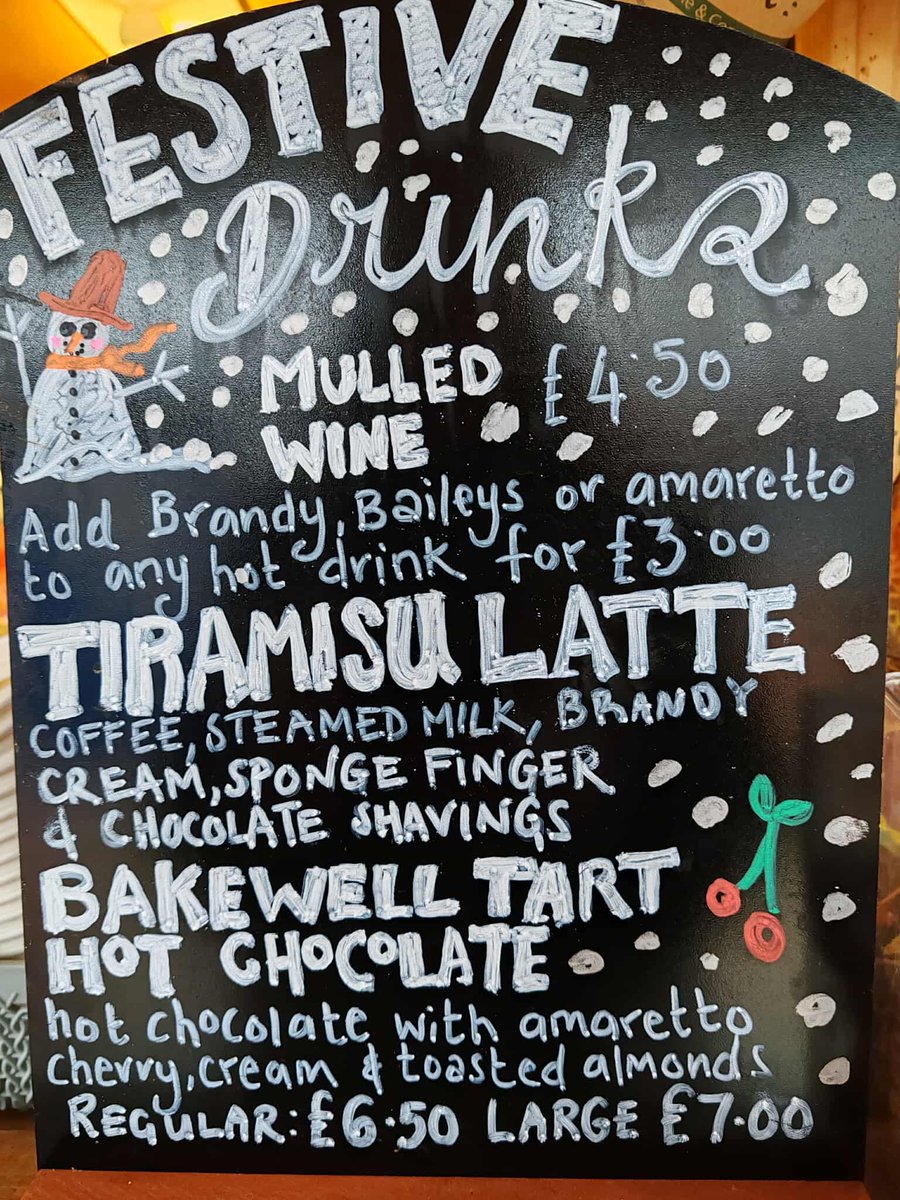 FESTIVE
Drinks
MULLED £4.50
WINE
Add Brandy, Baileys or amaretto
to any hot drink for £3.00
TIRAMISU LATTE
COFFEE, STEAMED MILK, BRANDY
CREAM, SPONGE FINGER
& CHOCOLATE SHAVINGS
BAKEWELL TART
HOT CHOCOLATE
hot chocolate with amaretto
cherry, cream & toasted almonds
REGULAR: £6.50 LARGE £7.00